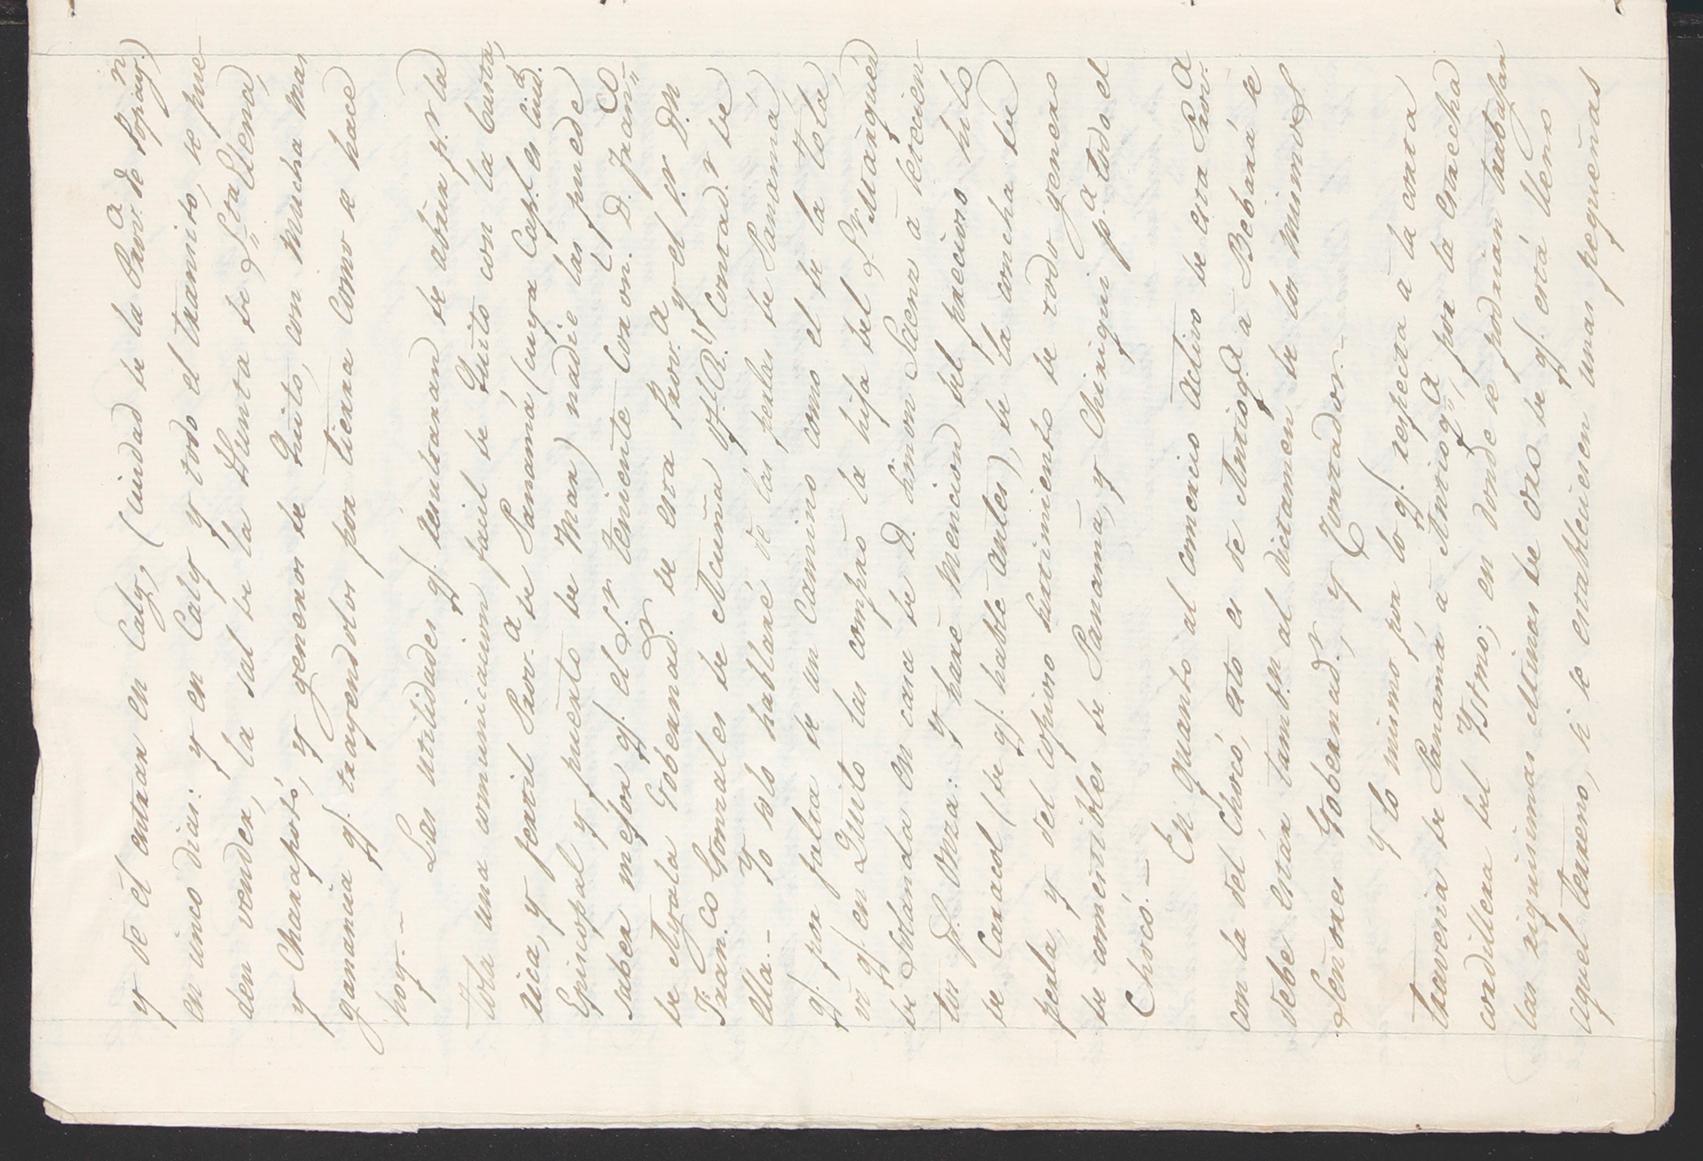 y de él entrar en Caly, (ciudad de la Prov.a de Popay.n)
en cinco dias: y en Caly y todo el tranzito, se pue-
den vender, la sal de la Punta de S.ta Elena,
y Charapotó, y generos de Quito, con mucha mas
ganancia q.e trayendolos por tierra como se hace
hoy.-
Las utilidades q.e resultaran de abrir p.r la
Tola una comunicacion facil de Quito con la basta,
rica, y fertil Prov.a de Panamá (cuya Cap.l es Ciud.d
Episcopal y puerto de Mar) nadie las puede
saber mejor q.e el S.r Teniente Coron.l D. Fran.co
de Ayala Gobernad.r de esta Prov.a y el S.r D.n
Fran.co Gonzales de Acuña Of. R.l y Contad.r de
ella.- Yo solo hablaré de las perlas de Panamá
q.e por falta de un camino como el de la Tola,
en Quito las compró la hija del S.r Marqués
de Solanda en casa de D. Simon Saenz a
tos p.s onza: y haré mencion del precioso hilo
de Caracol (de q.e hablé antes), de la concha de
perla, y del copioso surtimiento de todo genero
de comestibles de Panamá, y Chiriqui p.a todo el
Chocó.-
En quanto al comercio activo de esta Prov.a
con la del Chocó, esto es de Antioq.a a Bebará se
debe estar tamb.n al dictamen de los mismos
Señores Gobernad.r y Contador.-
Y lo mismo por lo q.e respecta a la corta
travesia de Panamá a Antioq.a por la estrecha
cordillera del Ystmo; en donde se podrian trabajar
las riquisimas Minas de oro de q.e está lleno
aquel terreno, si se estableciesen unas pequeñas